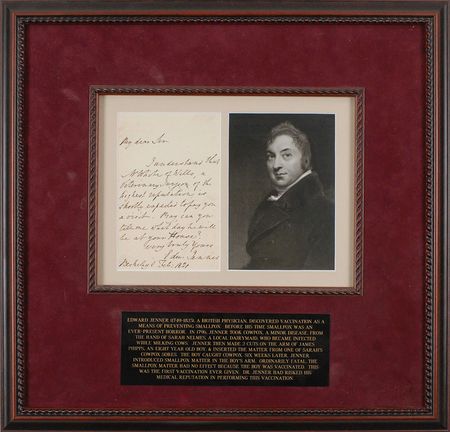 My dear Sir
I understand that
Mr White of Wells, a
Veterinary Surgeon of the
highest reputation is
shortly expected to pay you
a visit. Pray can you
tell me what day he will
be at your House?
Very truly Yours
Edw Jenner
Berkeley
Feb 1821
EDWARD JENNER (1749-1823), A BRITISH PHYSICIAN, DISCOVERED VACCINATION AS A
MEANS OF PREVENTING SMALLPOX. BEFORE HIS TIME SMALLPOX WAS AN
EVER-PRESENT HORROR. IN 1796, JENNER TOOK COWPOX, A MINOR DISEASE, FROM
THE HAND OF SARAH NELMES, A LOCAL DAIRYMAID, WHO BECAME INFECTED
WHILE MILKING COWS. JENNER THEN MADE 2 CUTS ON THE ARM OF JAMES
PHIPPS, AN EIGHT YEAR OLD BOY, & INSERTED THE MATTER FROM ONE OF SARAH'S
COWPOX SORES. THE BOY CAUGHT COWPOX. SIX WEEKS LATER, JENNER
INTRODUCED SMALLPOX MATTER IN THE BOY'S ARM. ORDINARILY FATAL, THE
SMALLPOX MATTER HAD NO EFFECT BECAUSE THE BOY WAS VACCINATED. THIS
WAS THE FIRST VACCINATION EVER GIVEN. DR. JENNER HAD RISKED HIS
MEDICAL REPUTATION IN PERFORMING THIS VACCINATION.